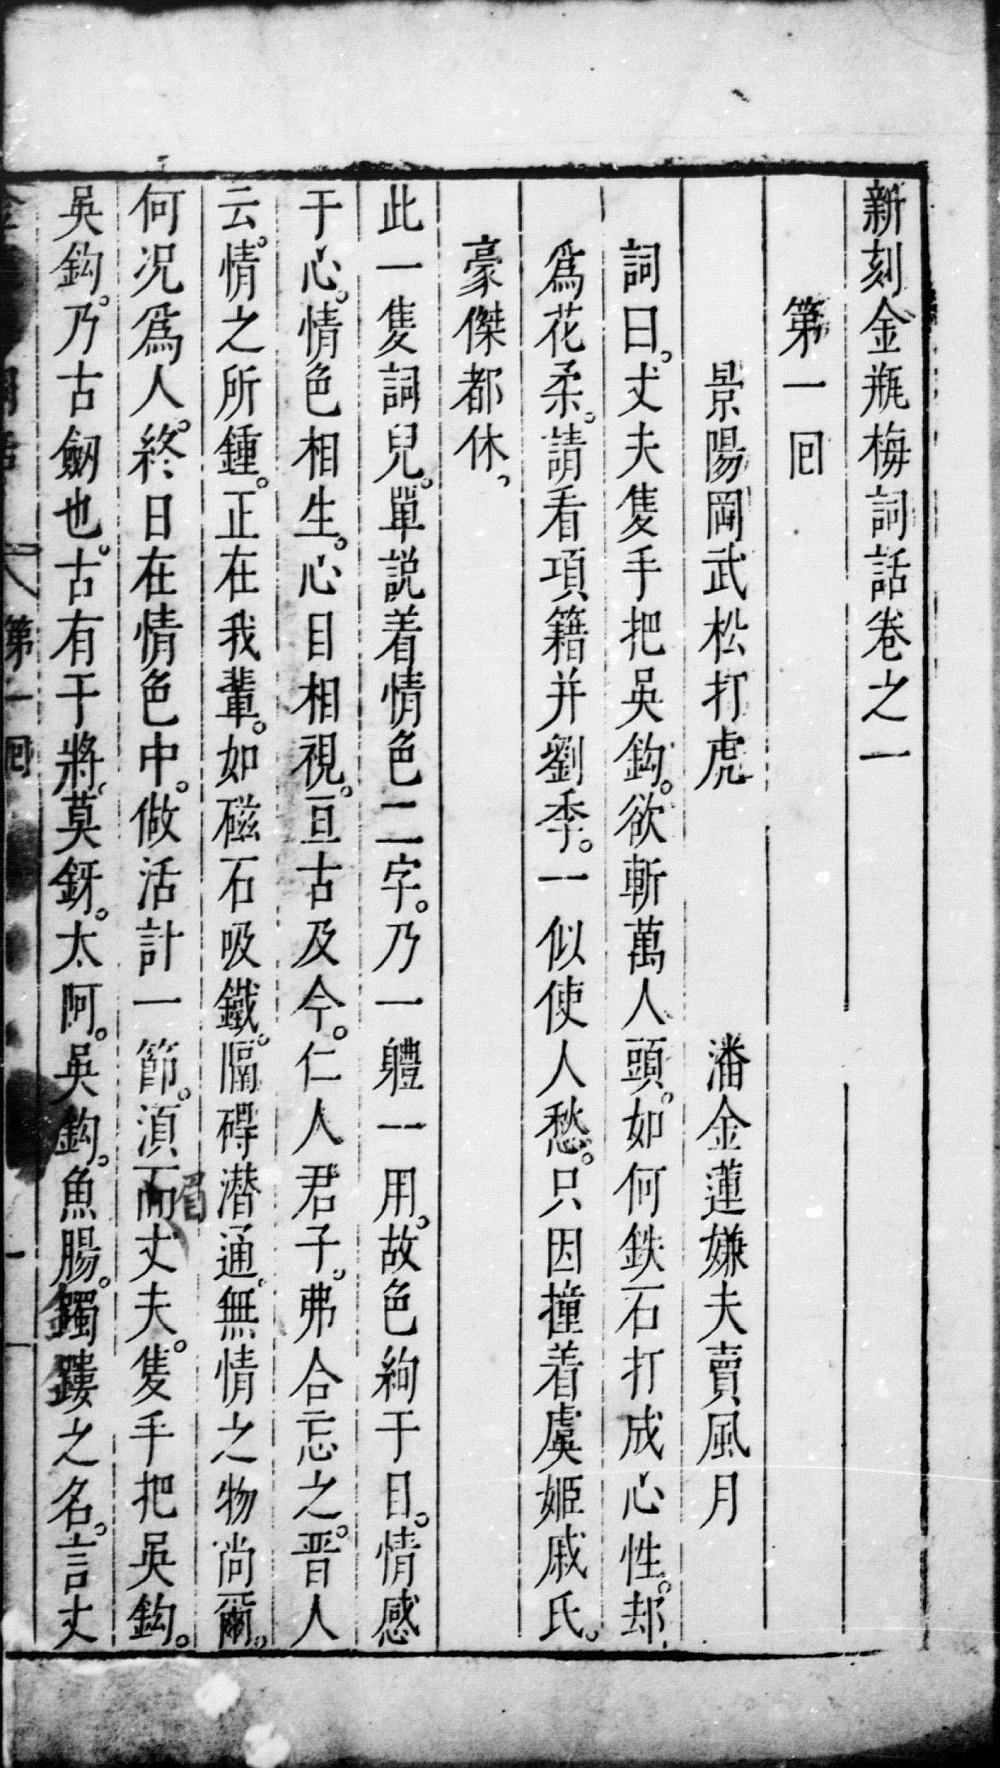 新刻金瓶梅詞話卷之一
第一回
景陽岡武松打虎　潘金蓮嫌夫賣風月
詞曰。丈夫隻手把吳鈎。欲斬萬人頭。如何鉄石打成心性。却
爲花柔。請看項籍并劉季。一似使人愁。只因撞着虞姬戚氏。
豪傑都休、
此一隻詞兒。單説着情色二字。乃一軆一用。故色絢于目。情感
于心。情色相生。心目相視。亘古及今。仁人君子。弗合忘之。晋人
云。情之所鍾。正在我輩。如磁石吸鐵。隔碍潛通。無情之物尚爾。
何况爲人。終日在情色中。做活計一節。湏而丈夫。隻手把吳鈎。
眉
吳鈎。乃古劒也。古有干將。莫鋣。太阿。吳鈎。魚腸。鐲鏤之名。言丈
第一回
一